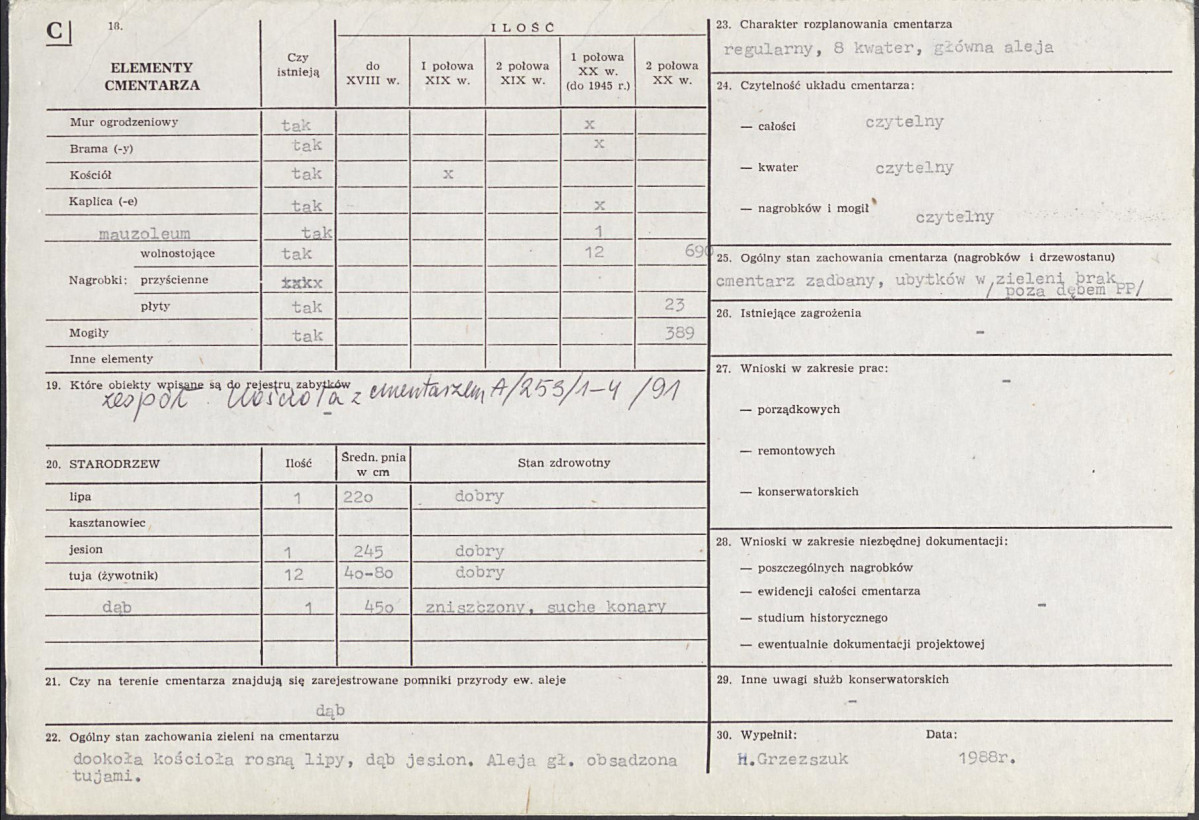 C 18.
ELEMENTY
CMENTARZA
Czy
istnieją
ILOŚĆ
do
XVIII w.
I połowa
XIX w.
2 połowa
XIX w.
1 połowa
XX w.
(do 1945 r.)
2 połowa
XX w.
Mur ogrodzeniowy tak x
Brama (-y) tak x
Kościół tak x
Kaplica (-e) tak x
mauzoleum tak 1
wolnostojące tak 12 690
Nagrobki: przyścienne
płyty tak 23
Mogiły tak 389
Inne elementy
19. Które obiekty wpisane są do rejestru zabytków
zespół kościoła z cmentarzem A/253/1-4 /91
-
20. STARODRZEW Ilość Średn. pnia
w cm
Stan zdrowotny
lipa 1 220 dobry
kasztanowiec
jesion 1 245 dobry
tuja (żywotnik) 12 40-80 dobry
dąb 1 450 zniszczony, suche konary
21. Czy na terenie cmentarza znajdują się zarejestrowane pomniki przyrody ew. aleje
dąb
22. Ogólny stan zachowania zieleni na cmentarzu
dookoła kościoła rosną lipy, dąb jesion. Aleja gł. obsadzona
tujami.
23. Charakter rozplanowania cmentarza
regularny, 8 kwater, główna aleja
24. Czytelność układu cmentarza:
— całości czytelny
— kwater czytelny
— nagrobków i mogił czytelny
25. Ogólny stan zachowania cmentarza (nagrobków i drzewostanu)
cmentarz zadbany, ubytków w zieleni brak
/ poza dębem PP/
26. Istniejące zagrożenia
-
27. Wnioski w zakresie prac:
-
— porządkowych
— remontowych
— konserwatorskich
28. Wnioski w zakresie niezbędnej dokumentacji:
— poszczególnych nagrobków
— ewidencji całości cmentarza
-
— studium historycznego
— ewentualnie dokumentacji projektowej
29. Inne uwagi służb konserwatorskich
-
30. Wypełnił: Data:
H.Grzezszuk 1988r.